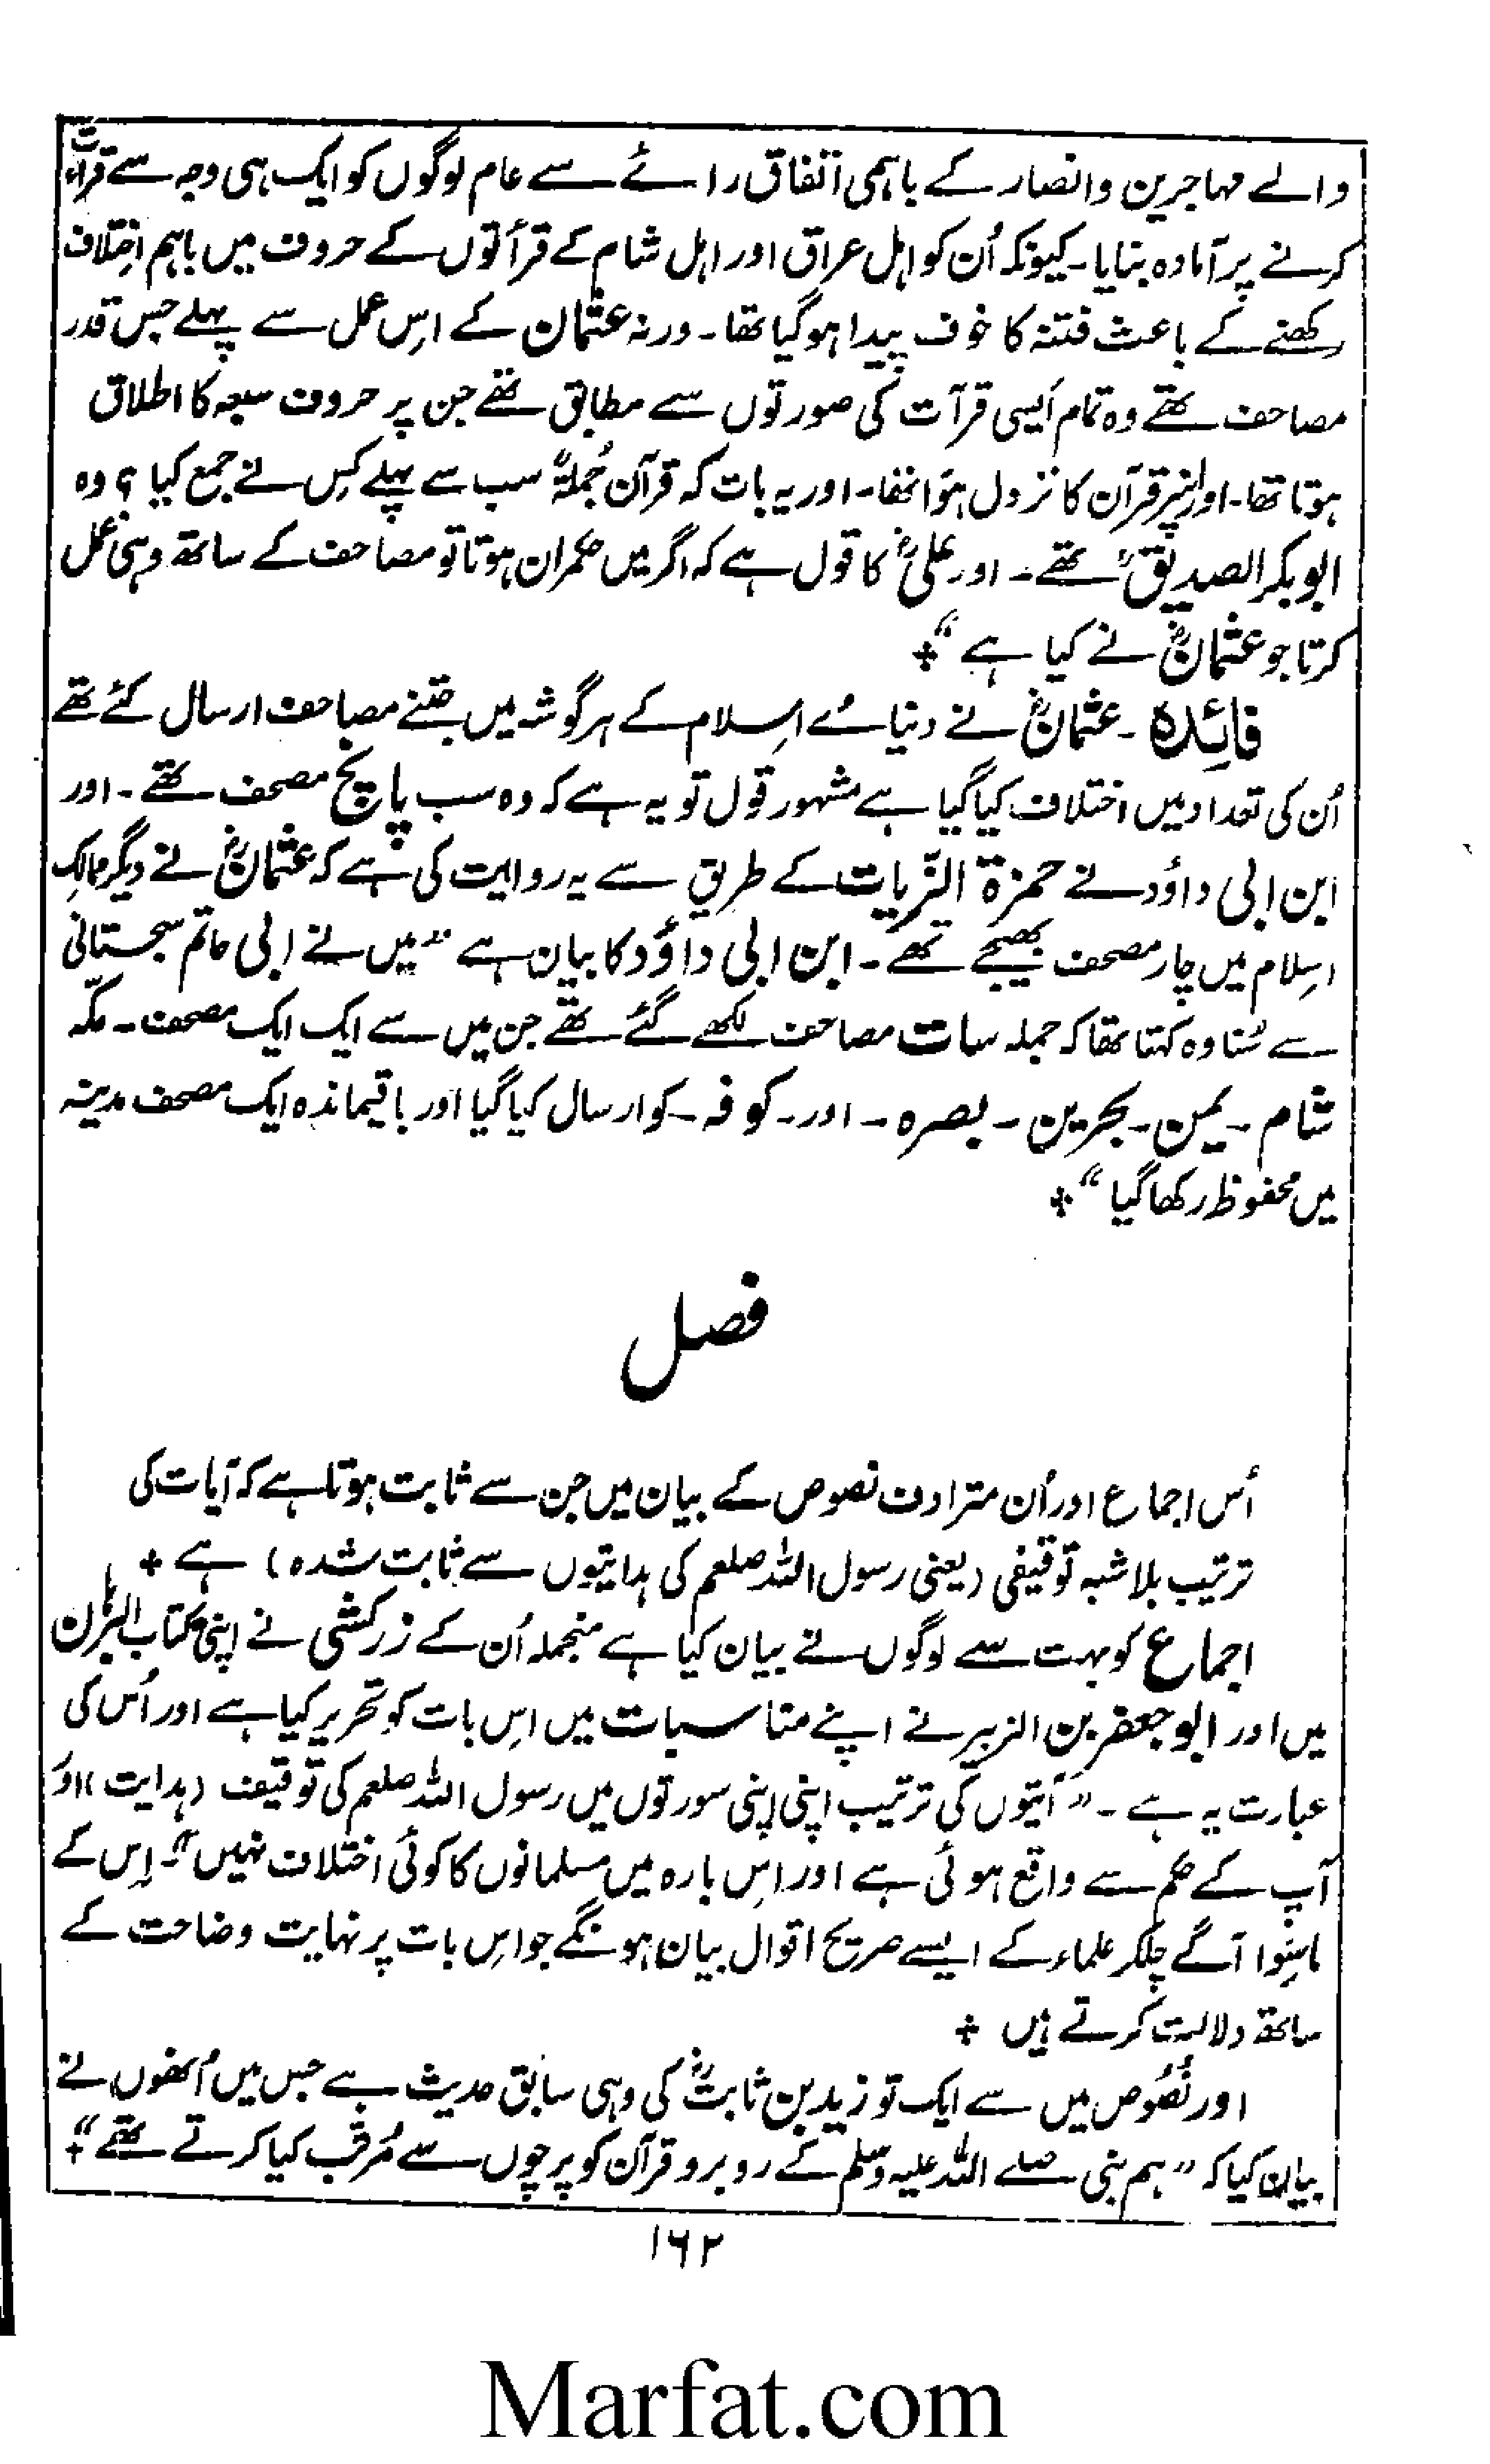 والے مہاجرین وانصار کے باہمی اتفاق رائے سے عام لوگوں کو ایک ہی وجہ سے قرأت
کرنے پر آمادہ بنایا۔ کیونکہ اُن کو اہل عراق اور اہل شام کے قرأتوں کے حروف میں باہم اختلاف
رکھنے کے باعث فتنہ کا خوف پیدا ہوگیا تھا۔ ورنہ عثمان کے اِس عمل سے پہلے جس قدر
مصاحف تھے وہ تمام اَیسی قرآت کی صورتوں سے مطابق تھے جن پر حروف سبعہ کا اطلاق
ہوتا تھا۔ اور انپر قرآن کا نزول ہؤا تھا۔ اور یہ بات کہ قرآن جُملۃً سب سے پہلے کس نے جمع کیا ؟ وہ
ابوبکر الصدیقؓ تھے۔ اور علیؓ کا قول ہے کہ اگر میں حکمران ہوتا تو مصاحف کے ساتھ وہی عمل
کرتا جو عثمانؓ نے کیا ہے “ ÷
فائِدہ ۔ عثمانؓ نے دنیائے اِسلام کے ہر گوشہ میں جتنے مصاحف ارسال کئے تھے
اُن کی تعداد میں اختلاف کیا گیا ہے مشہور قول تو یہ ہے کہ وہ سب پانچ مصحف تھے۔ اور
ابن ابی داؤد نے حمزۃ الزّیات کے طریق سے یہ روایت کی ہے کہ عثمانؓ نے دیگر ممالکِ
اِسلام میں چار مصحف بھیجے تھے۔ ابن ابی داؤد کا بیان ہے ” میں نے ابی حاتم سجستانی
سے سُنا وہ کہتا تھا کہ جملہ سات مصاحف لکھے گئے تھے جن میں سے ایک ایک مصحف۔ مکّہ
شام ۔ یمن ۔ بحرین ۔ بصرہ ۔ اور ۔ کوفہ ۔ کو ارسال کیا گیا اور باقیماندہ ایک مصحف مدینہ
میں محفوظ رکھا گیا “ ÷
فصل
اُس اجماع اور اُن مترادف نصوص کے بیان میں جن سے ثابت ہوتا ہے کہ آیات کی
ترتیب بلاشبہ توقیفی (یعنی رسول اللہ صلعم کی ہدایتوں سے ثابت شدہ) ہے ÷
اجماع کو بہت سے لوگوں نے بیان کیا ہے منجملہ اُن کے زرکشی نے اپنی کتاب البرہان
میں اور ابو جعفر بن الزبیر نے اپنے مناسبات میں اِس بات کو تحریر کیا ہے اور اُس کی
عبارت یہ ہے ۔ ” آیتوں کی ترتیب اپنی اپنی سورتوں میں رسول اللہ صلعم کی توقیف (ہدایت) اور
آپ کے حکم سے واقع ہوئی ہے اور اِس بارہ میں مسلمانوں کا کوئی اختلاف نہیں “۔ اِس کے
ماسِوا آگے چلکر علماء کے ایسے صریح اقوال بیان ہونگے جو اِس بات پر نہایت وضاحت کے
ساتھ دلالت کرتے ہیں ÷
اور نُصُوص میں سے ایک تو زید بن ثابتؓ کی وہی سابق حدیث ہے جس میں اُنھوں نے
بیان کیا کہ ” ہم نبی صلے اللہ علیہ وسلم کے روبرو قرآن کو پرچوں سے مُرتّب کیا کرتے تھے “ ÷
۱۶۲
Marfat.com